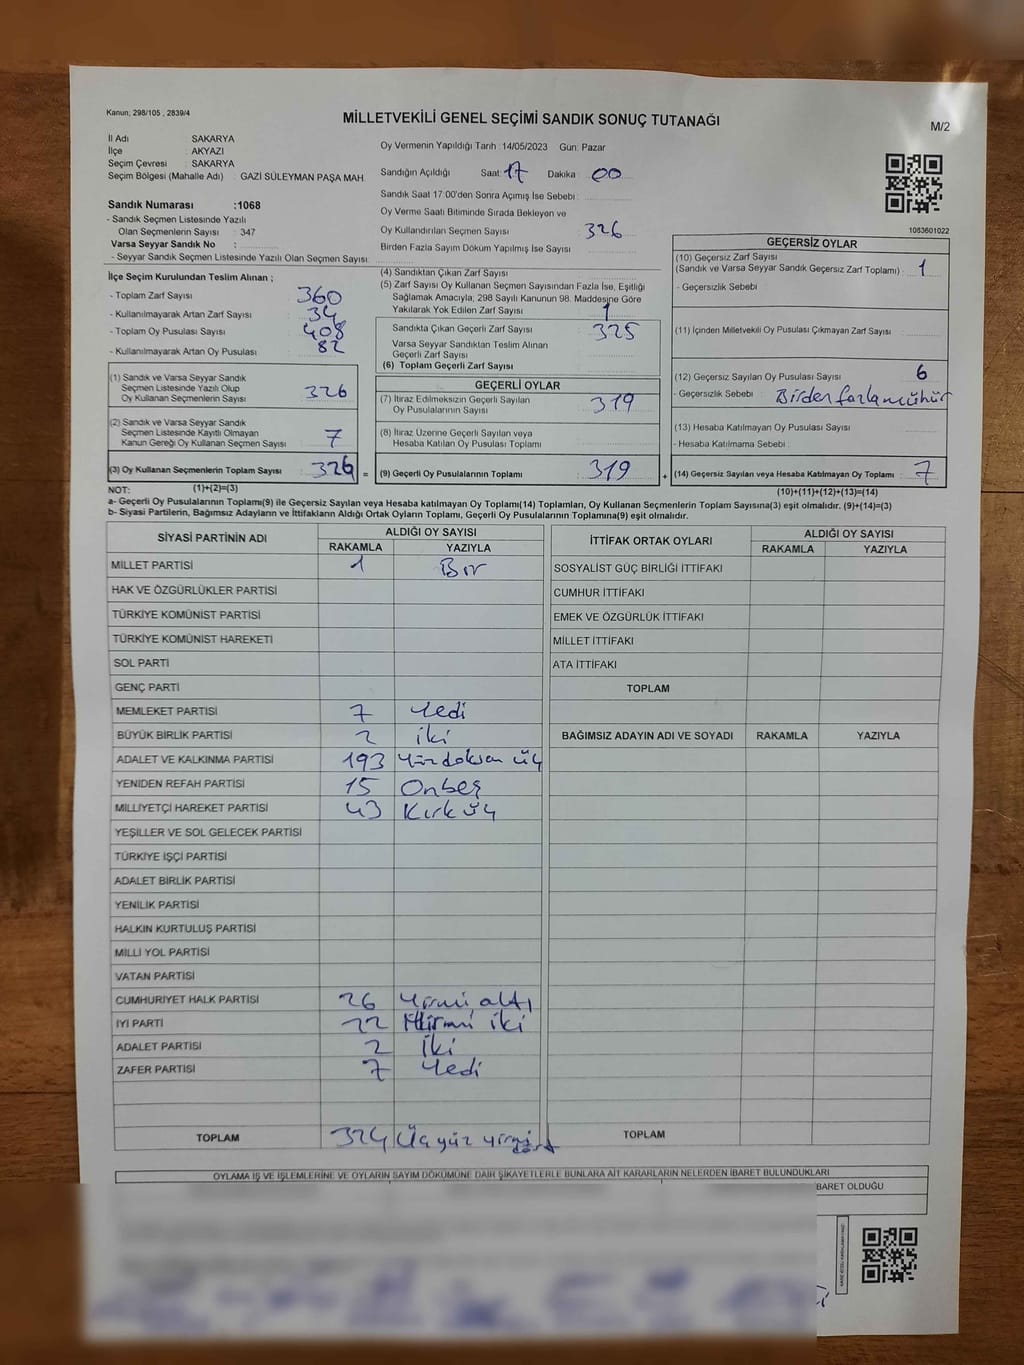 Kanun; 298/105 , 2839/4
MİLLETVEKİLİ GENEL SEÇİMİ SANDIK SONUÇ TUTANAĞI
M/2
İl Adı SAKARYA
İlçe : AKYAZI
Seçim Çevresi : SAKARYA
Seçim Bölgesi (Mahalle Adı) : GAZİ SÜLEYMAN PAŞA MAH.
Sandık Numarası :1068
- Sandık Seçmen Listesinde Yazılı
Olan Seçmenlerin Sayısı : 347
Varsa Seyyar Sandık No :
- Seyyar Sandık Seçmen Listesinde Yazılı Olan Seçmen Sayısı:
Oy Vermenin Yapıldığı Tarih :14/05/2023 Gün: Pazar
Sandığın Açıldığı Saat: 17 Dakika : 00
Sandık Saat 17:00'den Sonra Açımış İse Sebebi :
Oy Verme Saati Bitiminde Sırada Bekleyen ve
Oy Kullandırılan Seçmen Sayısı : 326
Birden Fazla Sayım Döküm Yapılmış İse Sayısı
1083601022
İlçe Seçim Kurulundan Teslim Alınan ;
- Toplam Zarf Sayısı 360
- Kullanılmayarak Artan Zarf Sayısı : 34
- Toplam Oy Pusulası Sayısı : 408
- Kullanılmayarak Artan Oy Pusulası : 82
(1) Sandık ve Varsa Seyyar Sandık
Seçmen Listesinde Yazılı Olup
Oy Kullanan Seçmenlerin Sayısı : 326
(2) Sandık ve Varsa Seyyar Sandık
Seçmen Listesinde Kayıtlı Olmayan
Kanun Gereği Oy Kullanan Seçmen Sayısı : 7
(3) Oy Kullanan Seçmenlerin Toplam Sayısı : 326 =
(1)+(2)=(3)
(4) Sandıktan Çıkan Zarf Sayısı :
(5) Zarf Sayısı Oy Kullanan Seçmen Sayısından Fazla İse, Eşitliği
Sağlamak Amacıyla; 298 Sayılı Kanunun 98. Maddesine Göre
Yakılarak Yok Edilen Zarf Sayısı : 1
Sandıkta Çıkan Geçerli Zarf Sayısı : 325
Varsa Seyyar Sandıktan Teslim Alınan
Geçerli Zarf Sayısı
(6) Toplam Geçerli Zarf Sayısı :
GEÇERLİ OYLAR
(7) İtiraz Edilmeksizin Geçerli Sayılan
Oy Pusulalarının Sayısı : 319
(8) İtiraz Üzerine Geçerli Sayılan veya
Hesaba Katılan Oy Pusulası Toplamı :
(9) Geçerli Oy Pusulalarının Toplamı : 319 +
GEÇERSİZ OYLAR
(10) Geçersiz Zarf Sayısı
(Sandık ve Varsa Seyyar Sandık Geçersiz Zarf Toplamı) : 1
- Geçersizlik Sebebi :
(11) İçinden Milletvekili Oy Pusulası Çıkmayan Zarf Sayısı :
(12) Geçersiz Sayılan Oy Pusulası Sayısı : 6
- Geçersizlik Sebebi : Birden fazla mühür
(13) Hesaba Katılmayan Oy Pusulası Sayısı :
- Hesaba Katılmama Sebebi :
(14) Geçersiz Sayılan veya Hesaba Katılmayan Oy Toplamı : 7
(10)+(11)+(12)+(13)=(14)
NOT:
a- Geçerli Oy Pusulalarının Toplamı(9) ile Geçersiz Sayılan veya Hesaba katılmayan Oy Toplamı(14) Toplamları, Oy Kullanan Seçmenlerin Toplam Sayısına(3) eşit olmalıdır. (9)+(14)=(3)
b- Siyasi Partilerin, Bağımsız Adayların ve İttifakların Aldığı Ortak Oyların Toplamı, Geçerli Oy Pusulalarının Toplamına(9) eşit olmalıdır.
SİYASİ PARTİNİN ADI ALDIĞI OY SAYISI
RAKAMLA YAZIYLA
MİLLET PARTİSİ 1 Bir
HAK VE ÖZGÜRLÜKLER PARTİSİ
TÜRKİYE KOMÜNİST PARTİSİ
TÜRKİYE KOMÜNİST HAREKETİ
SOL PARTİ
GENÇ PARTİ
MEMLEKET PARTİSİ 7 Yedi
BÜYÜK BİRLİK PARTİSİ 2 iki
ADALET VE KALKINMA PARTİSİ 193 Yüzdoksan üç
YENİDEN REFAH PARTİSİ 15 Onbeş
MİLLİYETÇİ HAREKET PARTİSİ 43 Kırk üç
YEŞİLLER VE SOL GELECEK PARTİSİ
TÜRKİYE İŞÇİ PARTİSİ
ADALET BİRLİK PARTİSİ
YENİLİK PARTİSİ
HALKIN KURTULUŞ PARTİSİ
MİLLİ YOL PARTİSİ
VATAN PARTİSİ
CUMHURİYET HALK PARTİSİ 26 Yirmi altı
İYİ PARTİ 22 Yirmi iki
ADALET PARTİSİ 2 İki
ZAFER PARTİSİ 7 Yedi
TOPLAM 324 Üçyüz yirmi dört
İTTİFAK ORTAK OYLARI ALDIĞI OY SAYISI
RAKAMLA YAZIYLA
SOSYALİST GÜÇ BİRLİĞİ İTTİFAKI
CUMHUR İTTİFAKI
EMEK VE ÖZGÜRLÜK İTTİFAKI
MİLLET İTTİFAKI
ATA İTTİFAKI
TOPLAM
BAĞIMSIZ ADAYIN ADI VE SOYADI RAKAMLA YAZIYLA
TOPLAM
OYLAMA İŞ VE İŞLEMLERİNE VE OYLARIN SAYIM DÖKÜMÜNE DAİR ŞİKAYETLERLE BUNLARA AİT KARARLARIN NELERDEN İBARET BULUNDUKLARI
BARET OLDUĞU